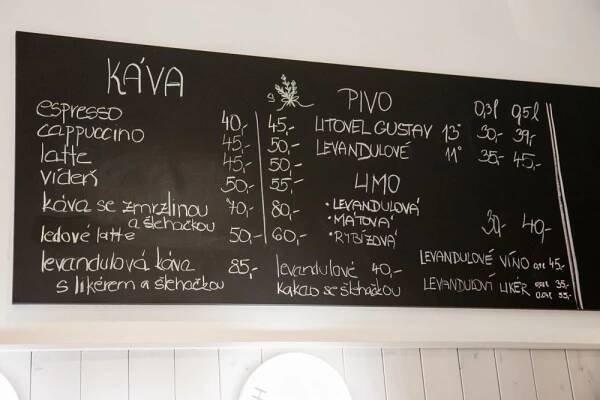 KÁVA
espresso 40,- 45,-
cappuccino 45,- 50,-
latte 45,- 50,-
vídeň 50,- 55,-
káva se zmrzlinou a šlehačkou 70,- 80,-
ledové latte 50,- 60,-
levandulová káva 85,-
s likérem a šlehačkou
levandulové 40,-
kakao se šlehačkou
PIVO 0,3l 0,5l
LITOVEL GUSTAV 13° 30,- 39,-
LEVANDULOVÉ 11° 35,- 45,-
LIMO
• LEVANDULOVÁ
• MÁTOVÁ 30,- 40,-
• RYBÍZOVÁ
LEVANDULOVÉ VÍNO 45,-
LEVANDULOVÍ LIKÉR 35,-
55,-
H